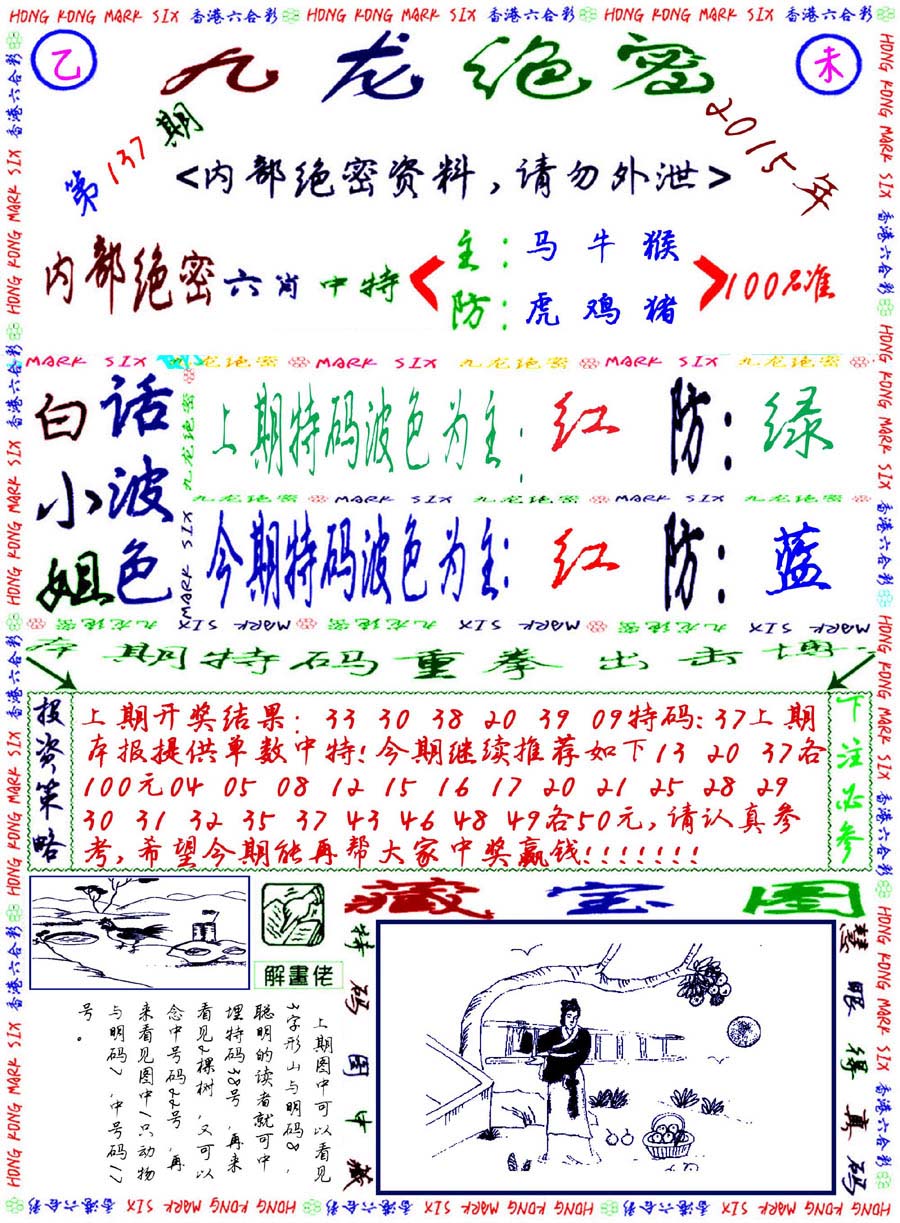 HONG KONG MARK SIX 香港六合彩 HONG KONG MARK SIX 香港六合彩 HONG KONG MARK SIX 香港六合彩
乙
九龙绝密
未
第137期
2015年
<内部绝密资料,请勿外泄>
内部绝密六肖中特
主:马牛猴
防:虎鸡猪
100%准
MARK SIX 九龙绝密 MARK SIX 九龙绝密 MARK SIX 九龙绝密
白话小波姐色
上期特码波色为主:红 防:绿
九龙绝密 MARK SIX 九龙绝密 MARK SIX 九龙绝密
今期特码波色为主:红 防:蓝
MARK SIX 九龙绝密 MARK SIX 九龙绝密 MARK SIX 九龙绝密
期特码重拳出击
投资策略
上期开奖结果: 33 30 38 20 39 09特码:37上期
本报提供单数中特!今期继续推荐如下13 20 37各
100元04 05 08 12 15 16 17 20 21 25 28 29
30 31 32 35 37 43 46 48 49各50元,请认真参
考,希望今期能再帮大家中奖赢钱!!!!!!!
下注必参
藏宝图
解畫佬
特码图中藏
慧眼得真码
上期图中可以看见
3字形山与明码8,
聪明的读者就可中
埋特码38号,再来
看见2棵树,又可以
念中号码22号,再
来看见图中1只动物
与明码7,中号码17
号。
HONG KONG MARK SIX 香港六合彩 HONG KONG MARK SIX 香港六合彩 HONG KONG MARK SIX 香港六合彩